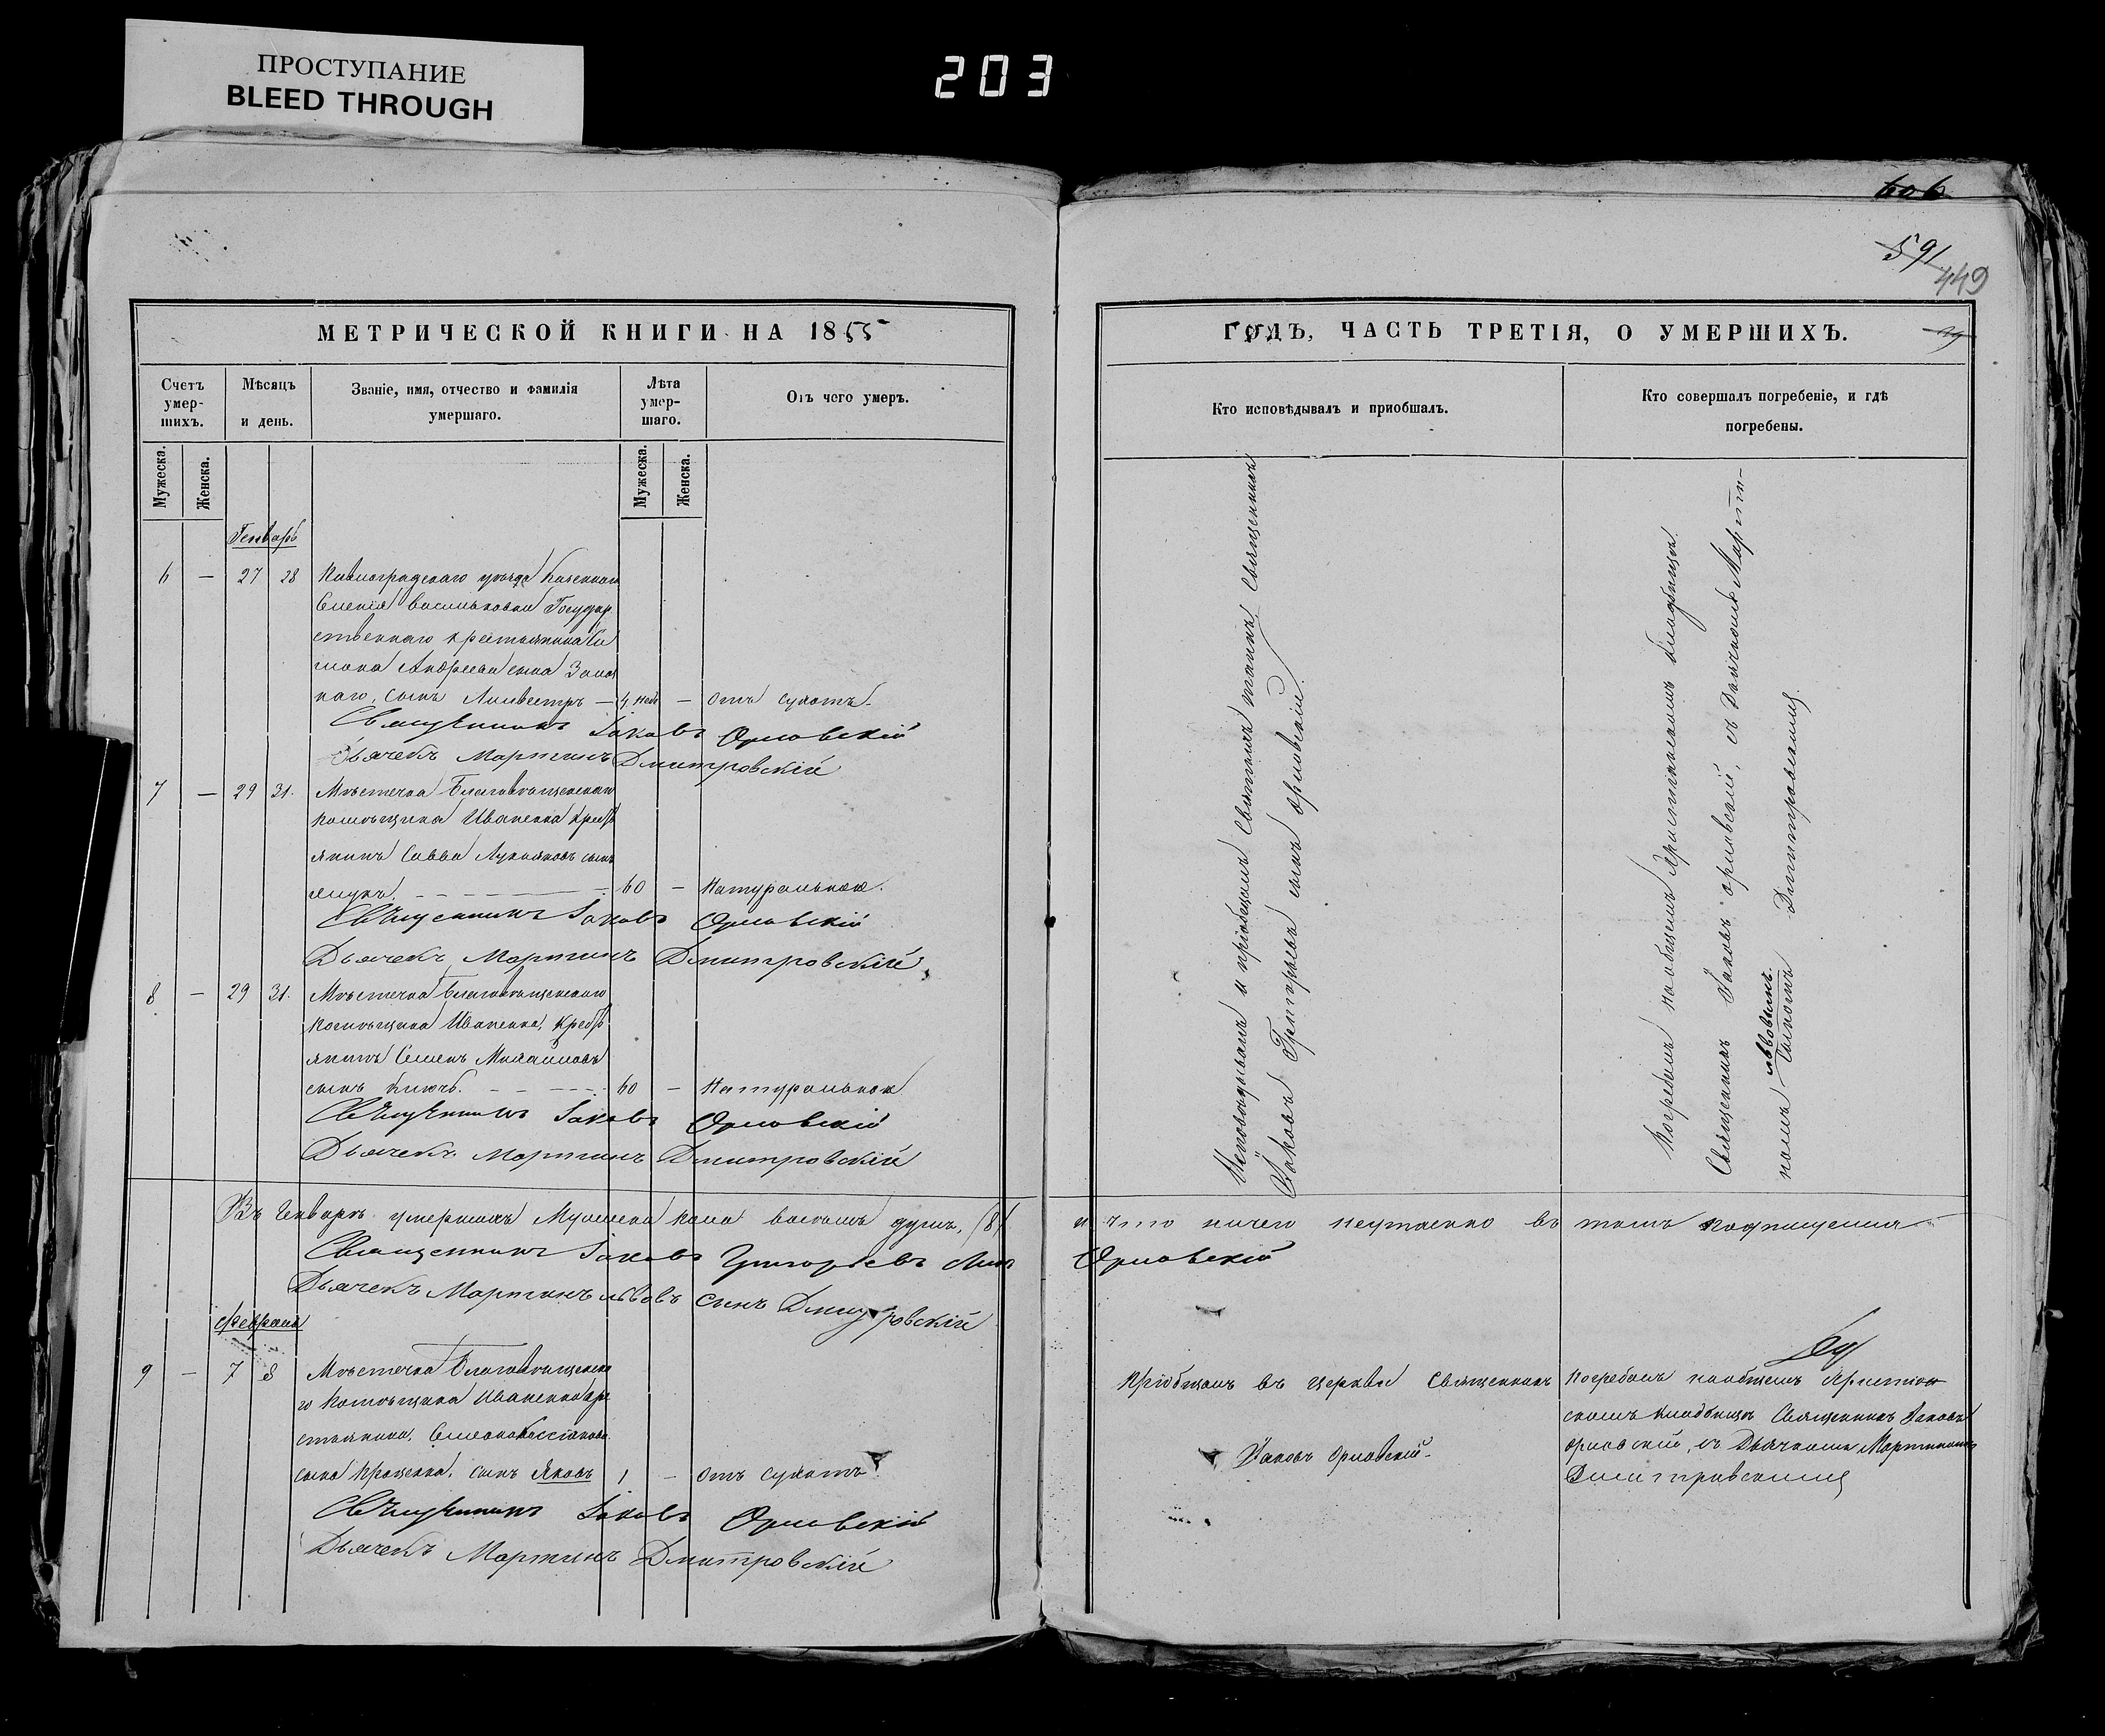 ПРОСТУПАНИЕ
BLEED THROUGH
203
606
591
449
МЕТРИЧЕСКОЙ КНИГИ НА 1855
Счетъ умер-шихъ.
Мѣсяцъ и день.
Званіе, имя, отчество и фамилія умершаго.
Лѣта умер-шаго.
Отъ чего умеръ.
Мужеска.
Женска.
Мужеска.
Женска.
Генварь
6 — 27 28
уѣзда
Государ
ственнаго крестьянина
Андреева сына
наго, сынъ — 4 нед — отъ сухотъ.
Священникъ Іаковъ Орловскій
Дьячекъ Мартинъ Дмитровскій
7 — 29 31. Мѣстечка Благовѣщенскаго
помѣщика Иваненка крест
янинъ Савва сынъ
60 — Натуральною.
Священникъ Іаковъ Орловскій
Дьячекъ Мартинъ Дмитровскій
8 — 29 31. Мѣстечка Благовѣщенскаго
помѣщика Иваненка, крест
янинъ Семенъ Михайловъ
сынъ 60 — Натуральною
Священникъ Іаковъ Орловскій
Дьячекъ Мартинъ Дмитровскій
Въ Генварѣ умершихъ Мужеска пола восемь душъ, (8)
Священникъ Іаковъ Григорьевъ
Дьячекъ Мартинъ Львовъ сынъ Дмитровскій
Февраль
9 — 7 8 Мѣстечка Благовѣщенска
го помѣщика Иваненка кре
стьянина,
сына сынъ Яковъ 1 — отъ сухотъ.
Священникъ Іаковъ Орловскій
Дьячекъ Мартинъ Дмитровскій
ГОДЪ, ЧАСТЬ ТРЕТІЯ, О УМЕРШИХЪ.
Кто исповѣдывалъ и приобщалъ.
Кто совершалъ погребеніе, и гдѣ погребены.
Исповѣдывалъ и пріобщалъ Святыхъ таинъ, Священникъ
Іаковъ Григорьевъ сынъ Орловскій.
Погребалъ на общемъ Христіанскомъ кладбищѣ
Священникъ Іаковъ Орловскій, съ Дьячкомъ Марти-
номъ Львовымъ Сыномъ Дмитровскимъ.
и что ничего неутаенно въ томъ подпишемся
Орловскій
Пріобщалъ въ церкви Священникъ
Іаковъ Орловскій.
Погребалъ на общемъ Христіан
скомъ кладбищѣ Священникъ Іаковъ
Орловскій, съ Дьячкомъ Мартиномъ
Дмитровскимъ